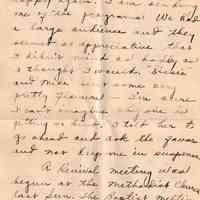 happy again. I am sending
me of the programs! We had
a large audience and they
seemed so appreciative that
I didn't mind as badly as
I thought I would. Bessie
and Miss sent some
pretty flowers. I'm sure
I can't one is
I told her to
go ahead and ask the favor
and not keep me in suspense
A Revival meeting was
begun at the Methodist Church
last Sun. The Baptist meeting